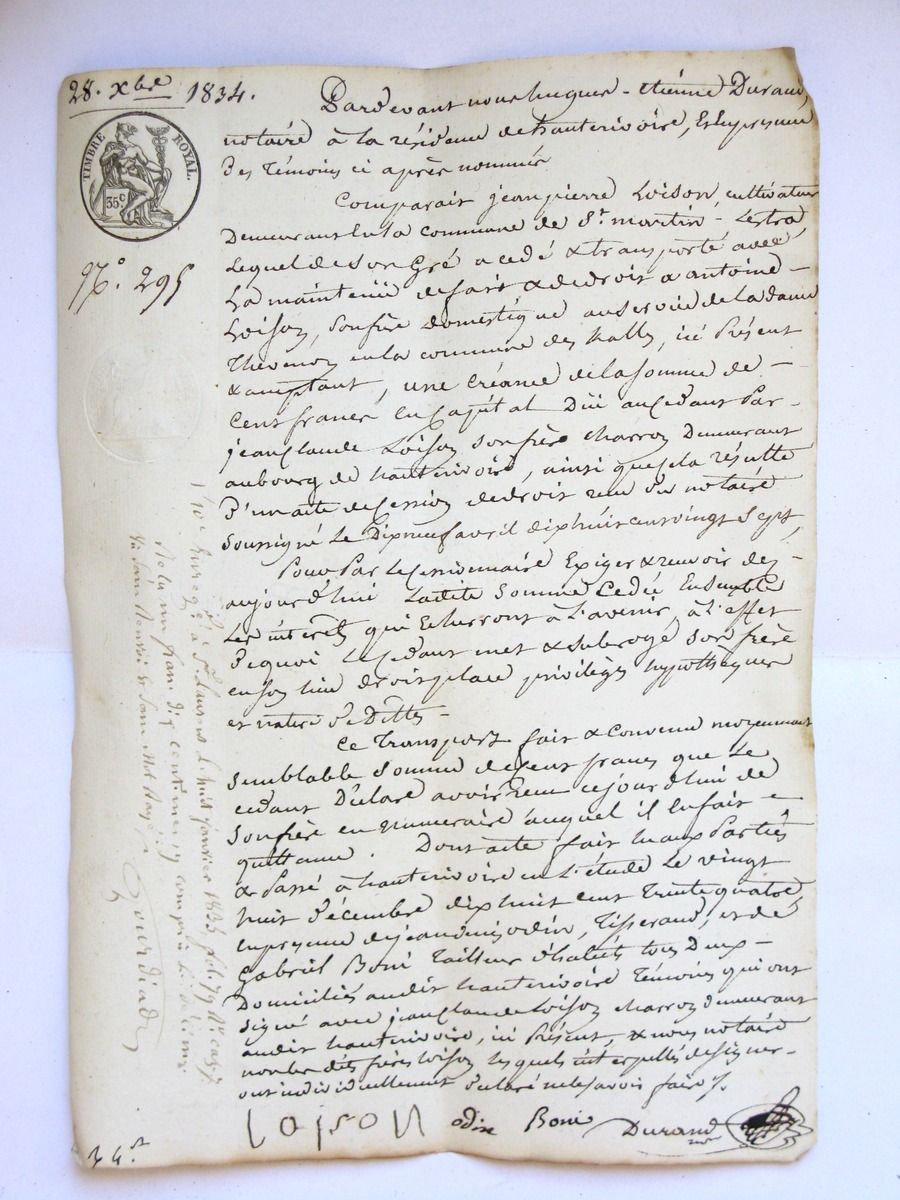 28. Xbre 1834.
TIMBRE ROYAL.
35c
N.° 295
Pardevant nous hugues - étienne Durand,
notaire à la résidence de hauterivoire, En présence
Des Témoins ci après nommés
Comparait jean pierre Loison, cultivateur
Demeurant En la commune de St martin - Lestra
Lequel de son Gré a cedé & transporté avec
La maintenüe de fait & de droit a antoine -
Loison, son frère Domestique au service de la dame
Thevenon en la commune des halles, ici Présent
& acceptant, une créance de la somme de -
Cent francs En Capital Düe au Cedant Par -
jean Claude Loison son frère charron Demeurant
au bourg de hauterivoire, ainsi que cela résulte
D'un acte de Cession de droit reçu du notaire
Soussigné Le Dix neuf avril dix huit cent vingt Sept,
Pour Par le Cessionnaire Exiger & recevoir dès -
aujourd'hui Ladite Somme Cedée Ensemble
Les interêts qui Echerront à L'avenir, à L'effet
De quoi le Cedant met & subroge son frère
en son lieu droit place privilèges hypothèques
et nature de Dettes -
Ce Transport fait & Convenu moyennant
Semblable Somme de Cent francs que Le
cedant Déclare avoir reçu cejourd'hui de
Son frère en numeraire auquel il En fait -
quittance. Dont acte fait lu aux Parties
& Passé à hauterivoire en L'étude Le vingt
huit Décembre dix huit cent Trente quatre,
en présence de jean denis odin, Tisserand, et de
Gabriel Boni Tailleur d'habits tous Deux -
Domiciliés audit hauterivoire Témoins qui ont
Signé avec jean Claude Loison charron demeurant
audit hauterivoire, ici Présent, & nous notaire
non les dits frères Loison lesquels interpellés de signer -
ont individuellement Déclaré ne le savoir faire
Loison odin Boni Durand
Enregistré à St Laurent le huit janvier 1835 fol. 79
Reçu un franc dix centimes y compris le décime
Gourdiad